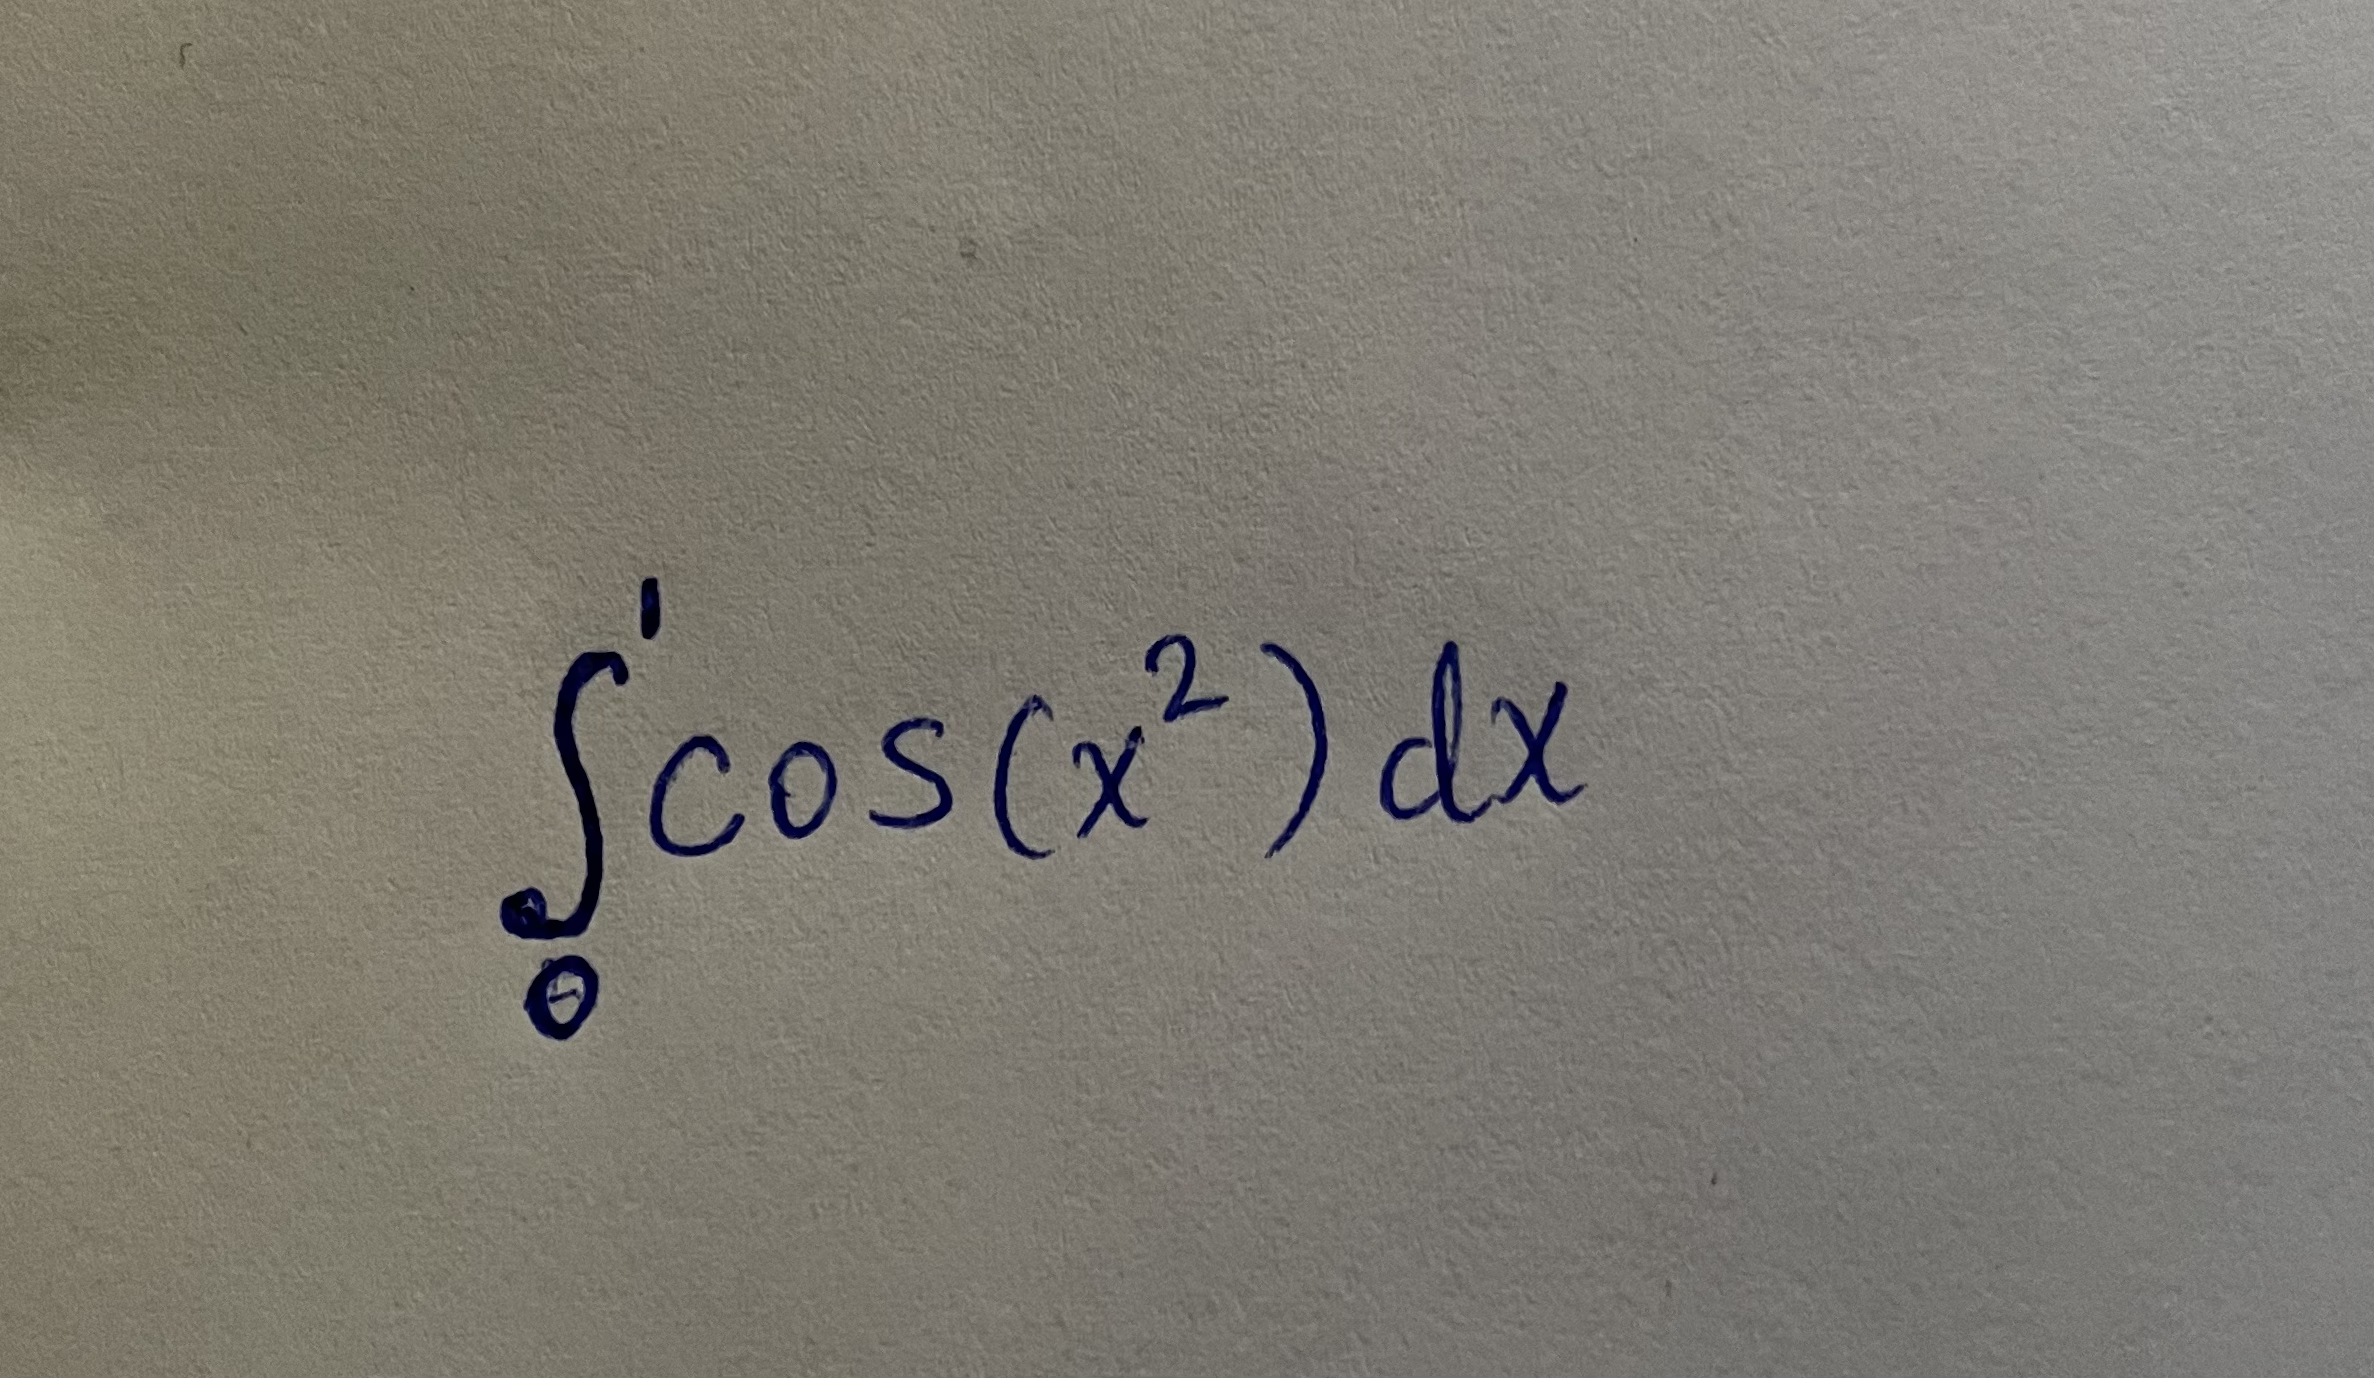 ∫₀¹ cos(x²) dx